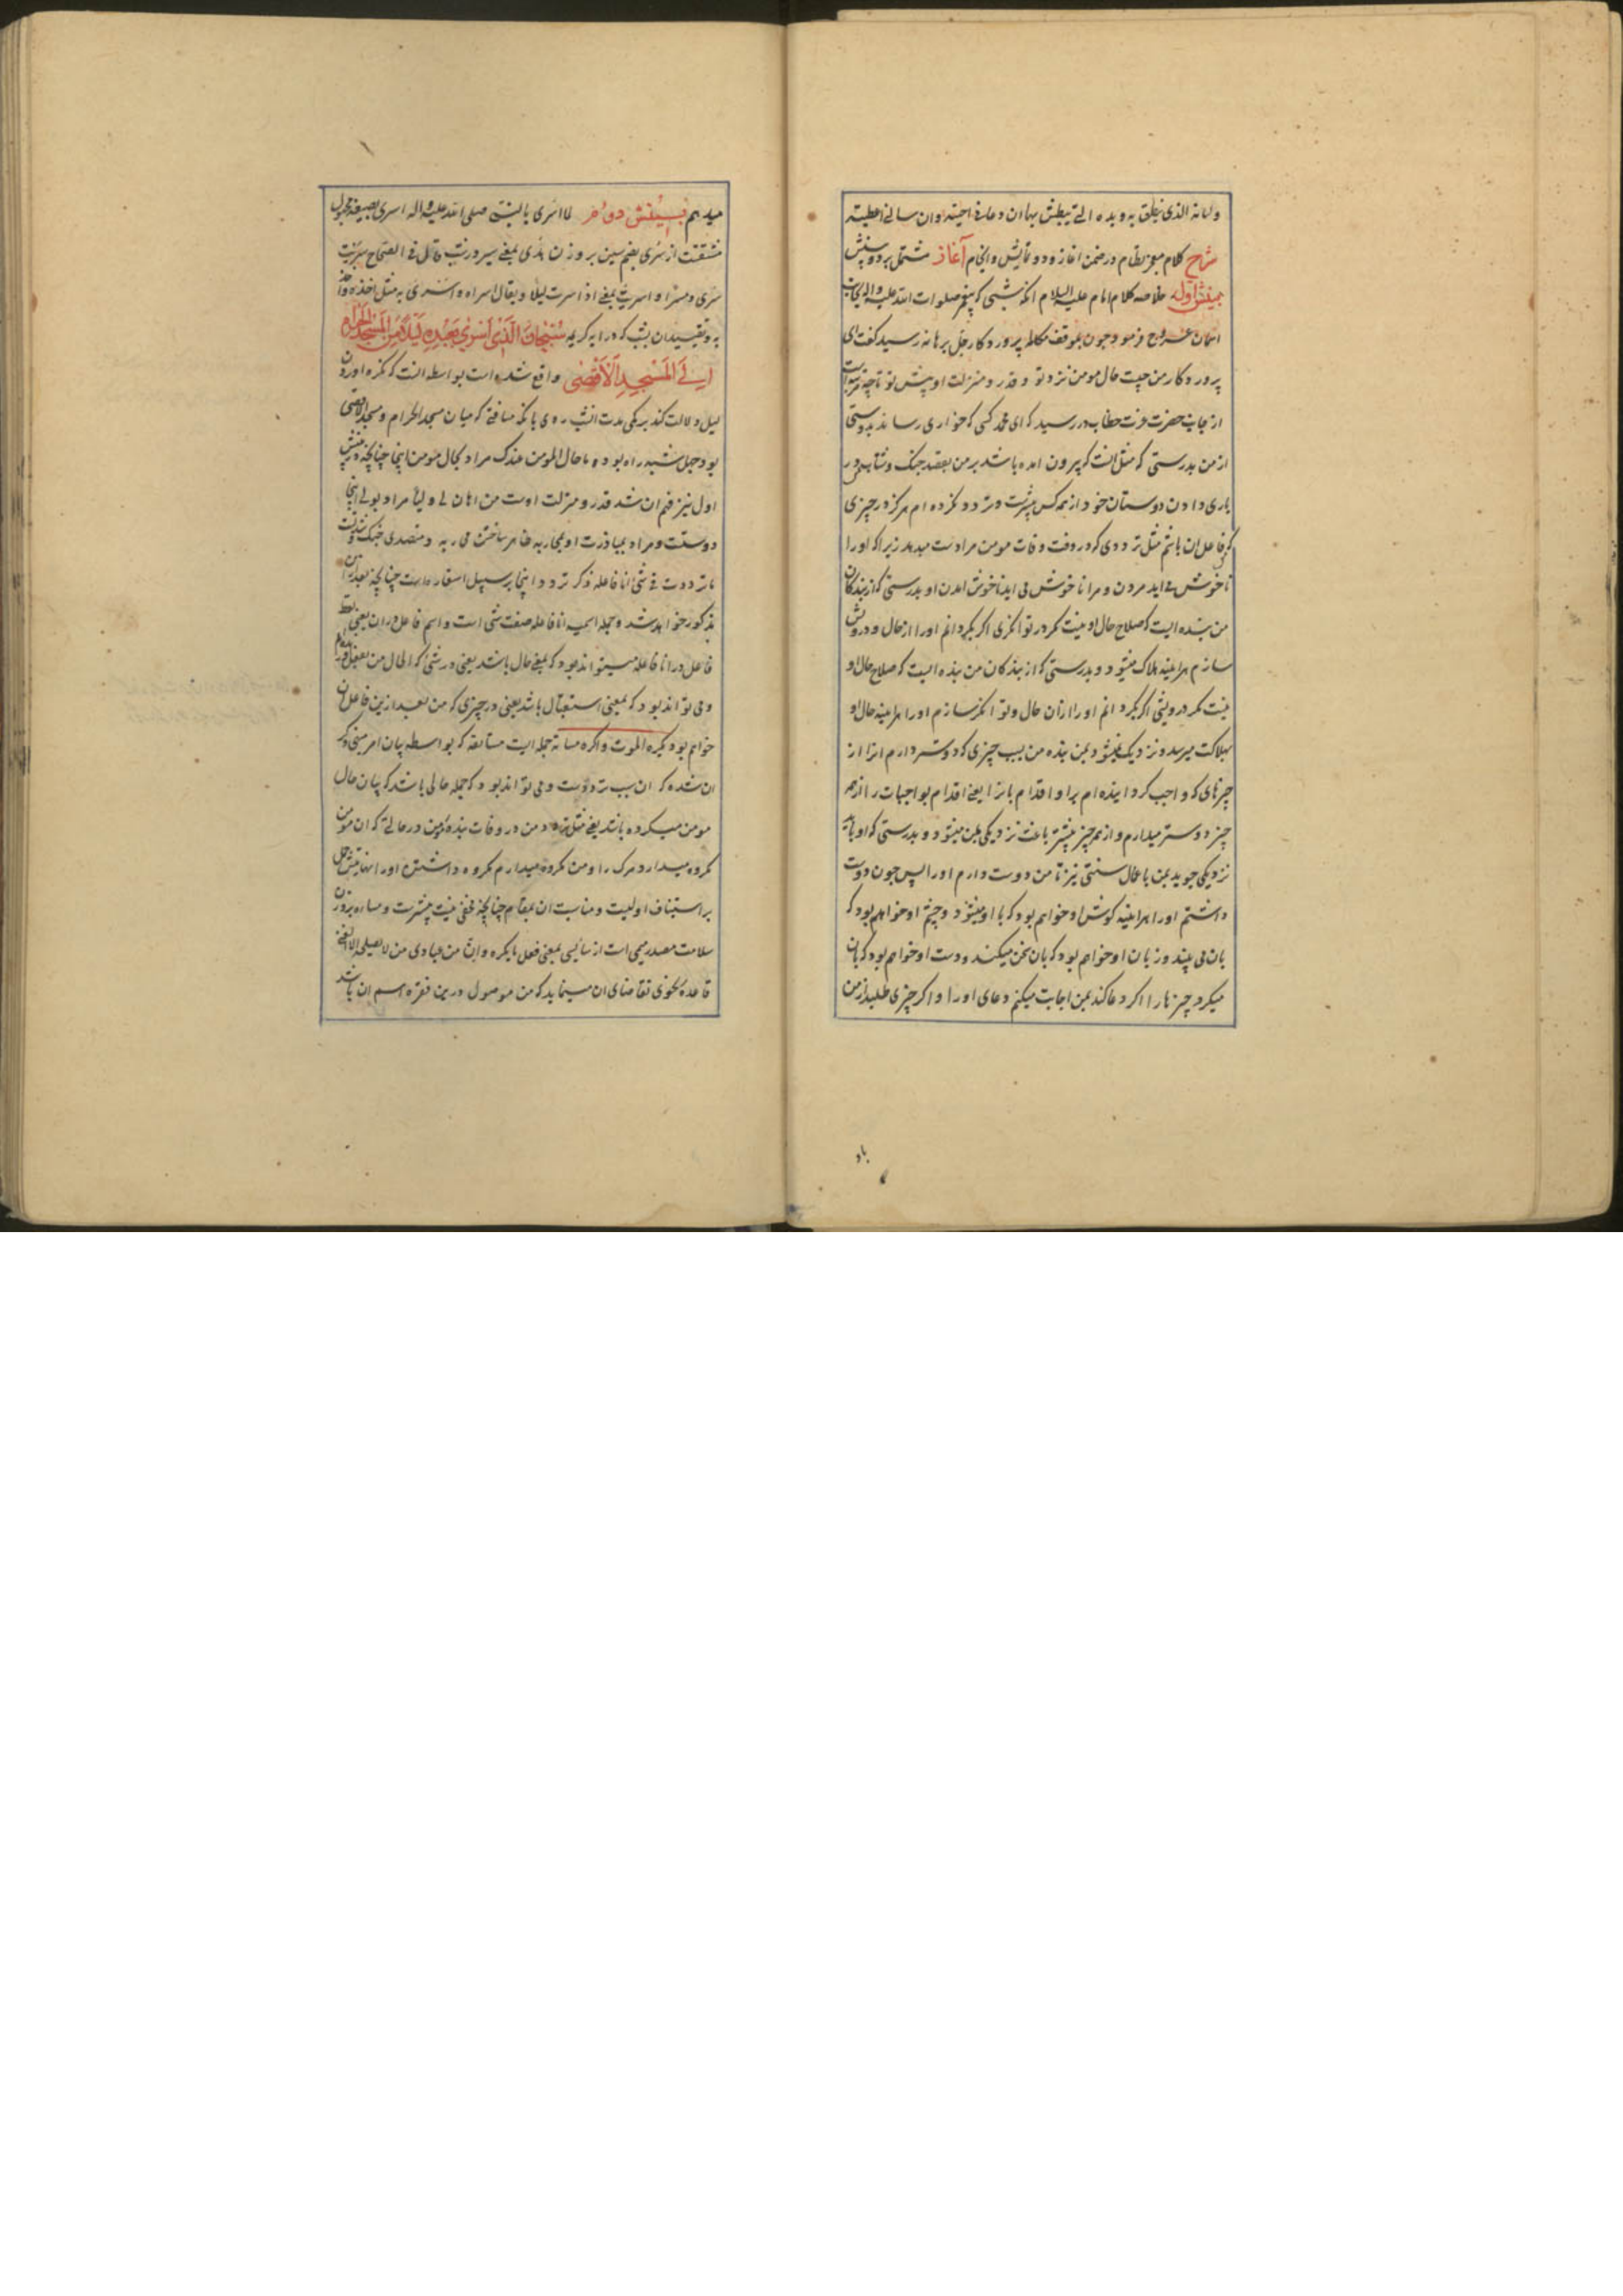 ولسانه الذی ینطق به ویده التی یبطش بها ان دعانی اجبته وان سالنی اعطیته
شرح کلام معجز نظام در ضمن اغاز و دو نمایش و انجام آغاز مشتمل بر دو بینش
بینش اول خلاصه کلام امام علیه السلام انکه شبی که پیغمبر صلوات الله علیه واله بجانب
اسمان عروج فرمود چون بموقف مکالمه پرورد کار جل برهانه رسید کفت ای
پرورد کار من چیست حال مومن نزد تو و قدر و منزلت او پیش تو تا چه مرتبه است
از جانب حضرت عزت خطاب در رسید که ای محمد کسی که خواری رساند بدوستی
از من بدرستی که مثل انست که بیرون امده باشد بر من بقصد جنک و شتاب من در
یاری دادن دوستان خود از همه کس بیشتر است و تردد نکرده ام هرکز در چیزی
که فاعل ان باشم مثل ترددی که در وقت وفات مومن مرا دست میدهد زیرا که او را
ناخوش می اید مردن و مرا ناخوش می اید ناخوش امدن او بدرستی که از بندکان
من بنده ایست که صلاح حال او نیست مکر در توانکری اکر بکردانم او را از حال و درویش
سازم هراینه هلاک میشود و بدرستی که از بندکان من بنده ایست که صلاح حال او
نیست مکر درویشی اکر بکردانم او را از ان حال و توانکر سازم او را هراینه حال او
بهلاکت میرسد و نزدیک نمیشود بمن بنده من بسبب چیزی که دوستر دارم انرا از
چیزهای که واجب کردانیده ام برا و اقدام بانرا یعنی اقدام بواجبات را از همه
چیز دوستر میدارم و از همه چیز بیشتر باعث نزدیکی بمن میشود و بدرستی که او باید
نزدیکی جوید بمن باعمال سنتی نیز تا من دوست دارم او را پس چون دوست
داشتم او را هراینه کوش او خواهم بود که با او میشنود و چشم او خواهم بود که
بان می بیند و زبان او خواهم بود که بان سخن میکند و دست او خواهم بود که بان
میکرد چیزها را اکر دعا کند بمن اجابت میکنم دعای او را و اکر چیزی طلبد از من
میدهم بینش دوم لما اسری بالنبی صلی الله علیه واله اسری بصیغه مجهول
مشتقست از سری بضم سین بر وزن هدی بمعنی سیر در شب قال فی الصحاح سریت
سری و مسرا و اسریت بمعنی اذا سرت لیلا و یقال اسراه و اسری به مثل اخذه و اخذ
به و تقیید ان بشب که در ایه کریمه سُبْحانَ الَّذی اَسْری بِعَبْدِهِ لَیْلاً مِنَ الْمَسْجِدِ الْحَرامِ
اِلَی الْمَسْجِدِ الْاَقْصی واقع شده است بواسطه انست که نکره اوردن
لیل دلالت کند بر کمی مدت انشب روی با انکه مسافتی که میان مسجد الحرام و مسجد الاقصی
بود چهل شبه راه بوده ما حال المومن عندک مراد بحال مومن اینجا چنانچه در بینش
اول نیز فهم ان شد قدر و منزلت اوست من اهان لی ولیا مراد بولی اینجا
دوستست و مراد بمبارزت او بمحاربه ظاهر ساختن محاربه و متصدی جنک شدنست
ما ترددت فی شئ انا فاعله ذکر تردد اینجا بر سبیل استعاره است چنانچه بعد از این
مذکور خواهد شد و جمله اسمیه انا فاعله صفت شئ است و اسم فاعل در ان یعنی لفظ
فاعل در انا فاعله میتواند بود که بمعنی حال باشد یعنی در شئی که الحال من بفعل
و می تواند بود که بمعنی استقبال باشد یعنی در چیزی که من بعد ازین فاعل ان
خواهم بود یکره الموت و اکره مساءته جمله ایست مستانفه که بواسطه بیان امر
ان شده که ان سبب تردد است و می تواند بود که جمله حالی باشد که بیان حال
مومن میکرده باشد یعنی مثل تردد من در وفات بنده مومن در حالتی که ان مومن
مکروه میدارد مرک را و من مکروه میدارم مکروه داشتن او را
بر استیناف اولیت و مناسبت ان بمقام چنانچه مخفی نیست بیشتر است و مساءه بر وزن
سلامت مصدر میمی است از ساء یسی بمعنی فعل ما یکره و ان من عبادی من لا یصلحه الا الغنی
قاعده نحوی تقاضای ان مینماید که من موصول درین فقره اسم ان باشد